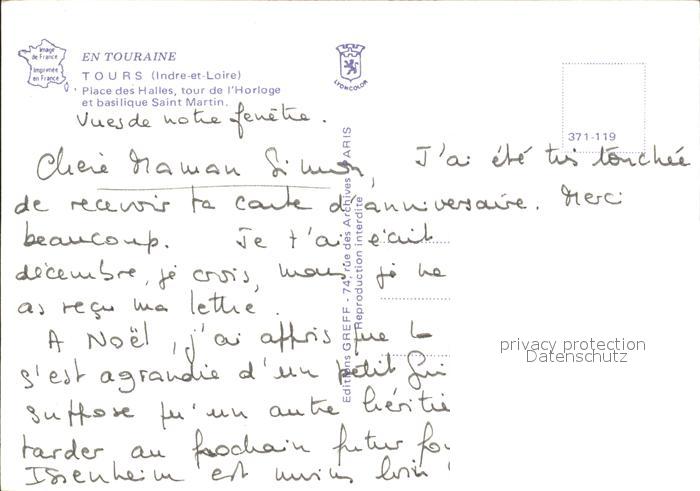 Image
de France
Imprimée
en France
EN TOURAINE
TOURS (Indre-et-Loire)
Place des Halles, tour de l'Horloge
et basilique Saint Martin.
LYONCOLOR
371-119
Editions GREFF - 74, rue des Archives - PARIS
Reproduction interdite
Vues de notre fenêtre.
Chère Maman Simon, J'ai été très touchée
de recevoir ta carte d'anniversaire. Merci
beaucoup. Je t'ai écrit
décembre, je crois, mais je ne
as reçu ma lettre.
A Noël, j'ai appris que l
s'est agrandie d'un petit
suppose qu'un autre héritie
tarder au prochain futur fo
Issenheim est moins loin
privacy protection
Datenschutz